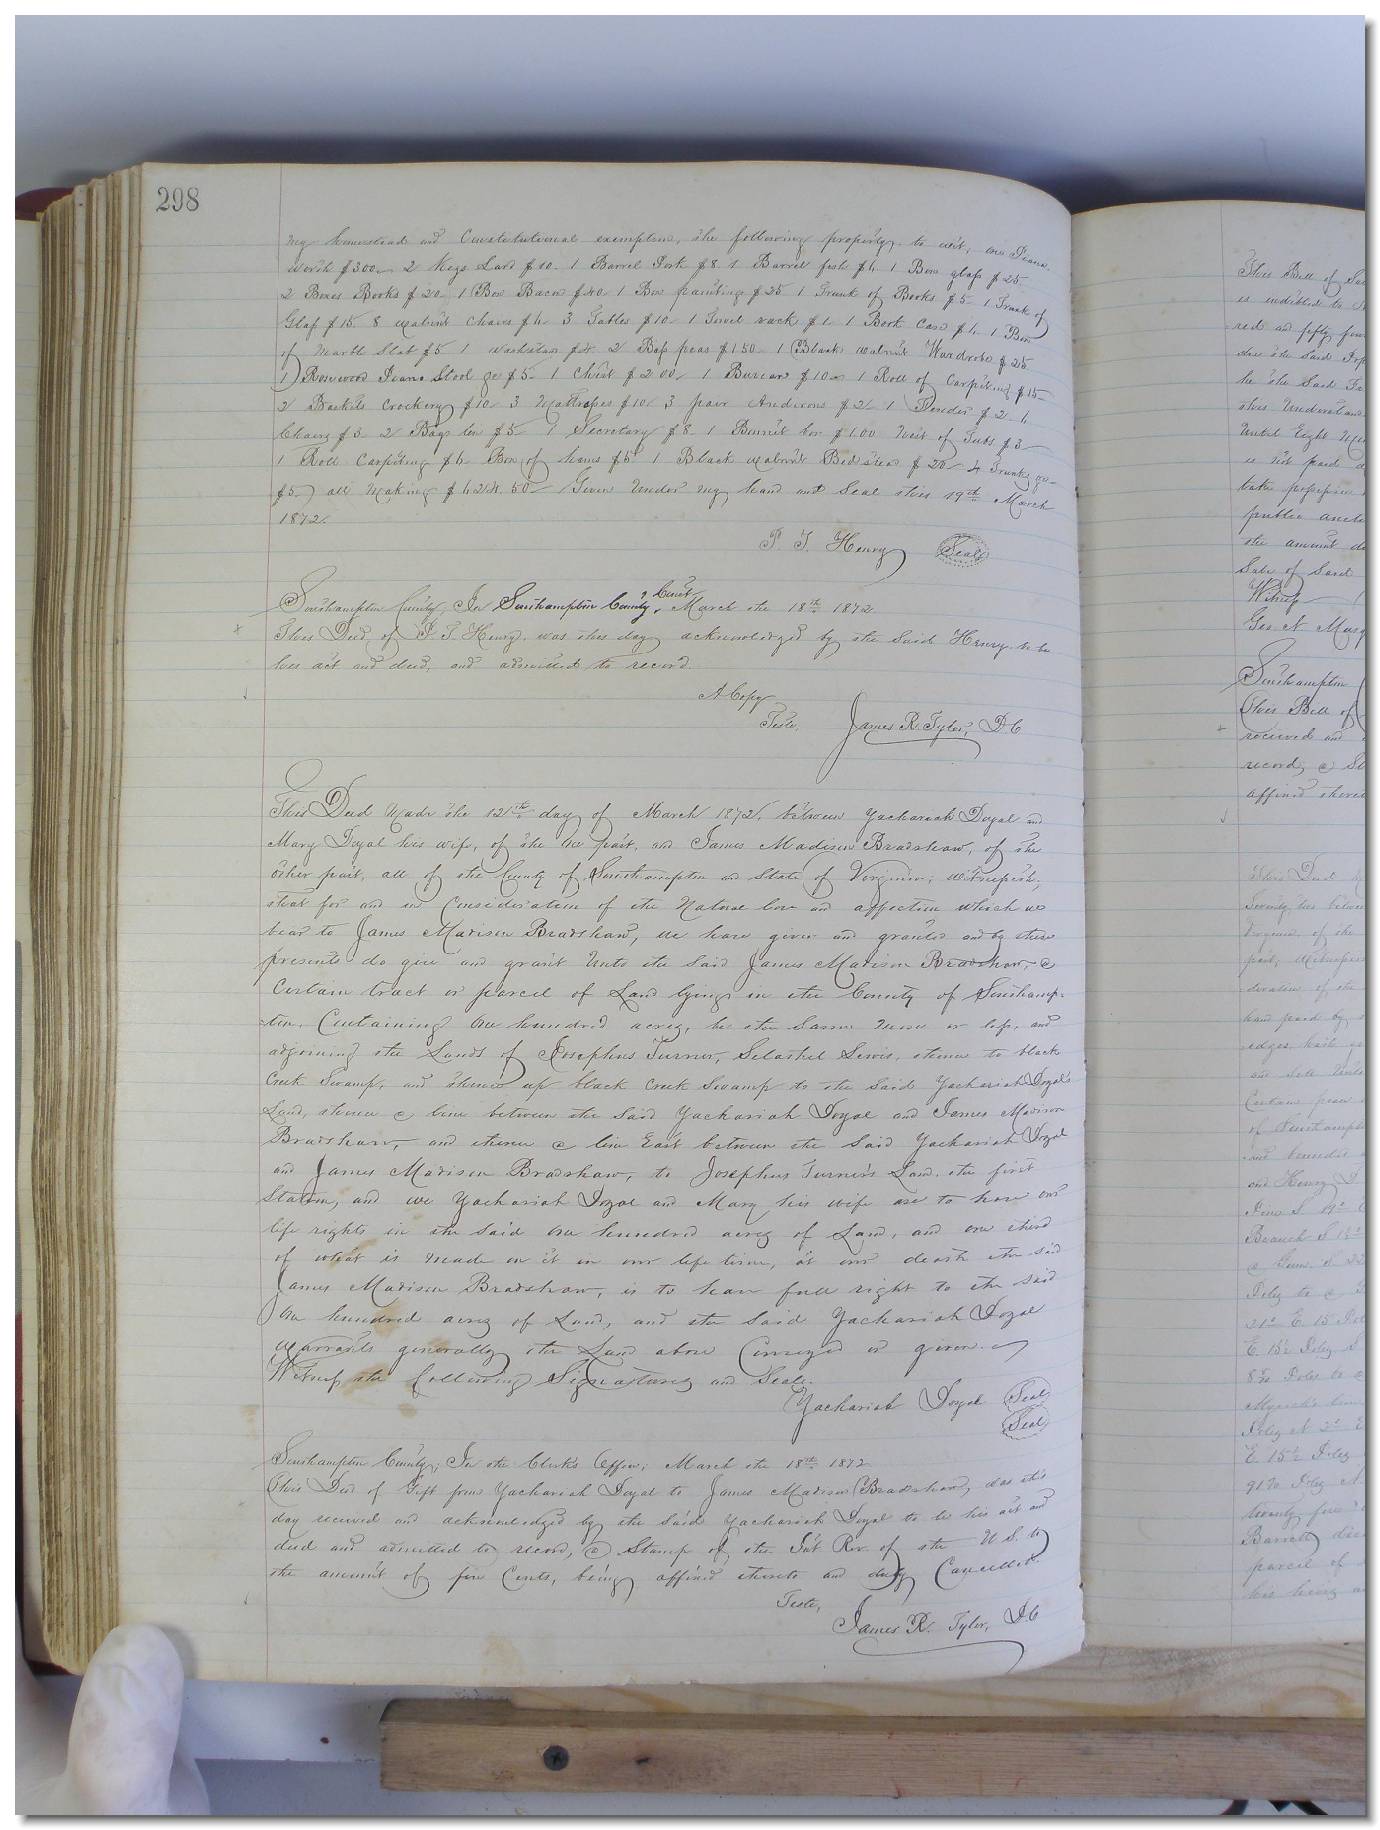 298
my homestead and Constitutional exemption, the following property, to wit, one Piano
worth $300. 2 Kegs Lard $10. 1 Barrel Pork $8. 1 Barrel fish $6. 1 Box glass $25
2 Boxes Books $20. 1 Box Bacon $40. 1 Box painting $25 1 Trunk of Books $5. 1 Trunk of
Glass $15. 8 walnut Chairs $6. 3 Tables $10. 1 Towel rack $1. 1 Book Case $6. 1 Box
of Marble Slab $5 1 washstan $4. 2 Bags peas $1.50. 1 Black walnut Wardrobe $25
1 Rosewood Piano Stool $5. 1 Chest $2.00. 1 Bureau $10. 1 Roll of Carpeting $15
2 Baskets Crockery $10. 3 Mattrasses $10. 3 pair Andirons $2. 1 Fender $2. 6
Chairs $3. 2 Bags $5. 1 Secretary $8. 1 $1.00 Nest of Tubs $3
1 Roll Carpeting $6. Box of hams $5 1 Black walnut Bedstead $20. 4 Trunks
$5. all Making $624.50 Given under my hand and Seal this 19th March
1872.
P. T. Henry Seal
Southampton County, In Southampton County Court, March the 18th 1872
This Deed of P. T. Henry was this day acknowledged by the Said Henry to be
his act and deed, and admitted to record.
A Copy
Teste, James R. Tyler, D C
This Deed Made the 12th day of March 1872. between Zachariah Doyal and
Mary Doyal his wife, of the one part, and James Madison Bradshaw, of the
other part, all of the County of Southampton and State of Virginia; witnesseth;
that for and in Consideration of the Natural love and affection which we
bear to James Madison Bradshaw, we have given and granted and by these
presents do give and grant unto the said James Madison Bradshaw, a
Certain tract or parcel of Land lying in the County of Southamp-
ton, Containing One hundred acres, be the Same more or less, and
adjoining the Lands of Josephus Turner, Selathel Lewis, thence to black
Creek Swamp, and thence up black Creek Swamp to the Said Zachariah Doyal's
Land, thence a line between the Said Zachariah Doyal and James Madison
Bradshaw, and thence a line East between the Said Zachariah Doyal
and James Madison Bradshaw, to Josephus Turner's Land, the first
Station, and we Zachariah Doyal and Mary his wife are to have our
life rights in the said One hundred acres of Land, and one third
of what is made on it in our life time, at our death the said
James Madison Bradshaw, is to have full right to the said
One hundred acres of Land, and the Said Zachariah Doyal
warrants generally the Land above Conveyed or given.
Witness the following Signatures and Seals.
Zachariah Doyal Seal
Seal
Southampton County; In the Clerk's Office; March the 18th 1872
This Deed of Gift from Zachariah Doyal to James Madison Bradshaw, was this
day received and acknowledged by the Said Zachariah Doyal to be his act and
deed and admitted to record, a Stamp of the Int Rev. of the U. S. to
the amount of five Cents, being affixed thereto and duly Cancelled.
Teste,
James R. Tyler, D C
This Bill of
is indebted to
red and fifty
he the Said
this
Until Eight
is not paid
take possession
public
the amount
Sale of Said
Witness
Geo. N.
Southampton
This Bill of
received and
record, a
affixed
This Deed
Seventy two between
Virginia, of the
part, Witnesseth
-deration of the
hand paid by
Certain
of Southampton
and bounded
and Henry
Branch S
Poles to a
21° E. 15
8 Poles to a
Poles N
E 15
twenty
Barrett
parcel of